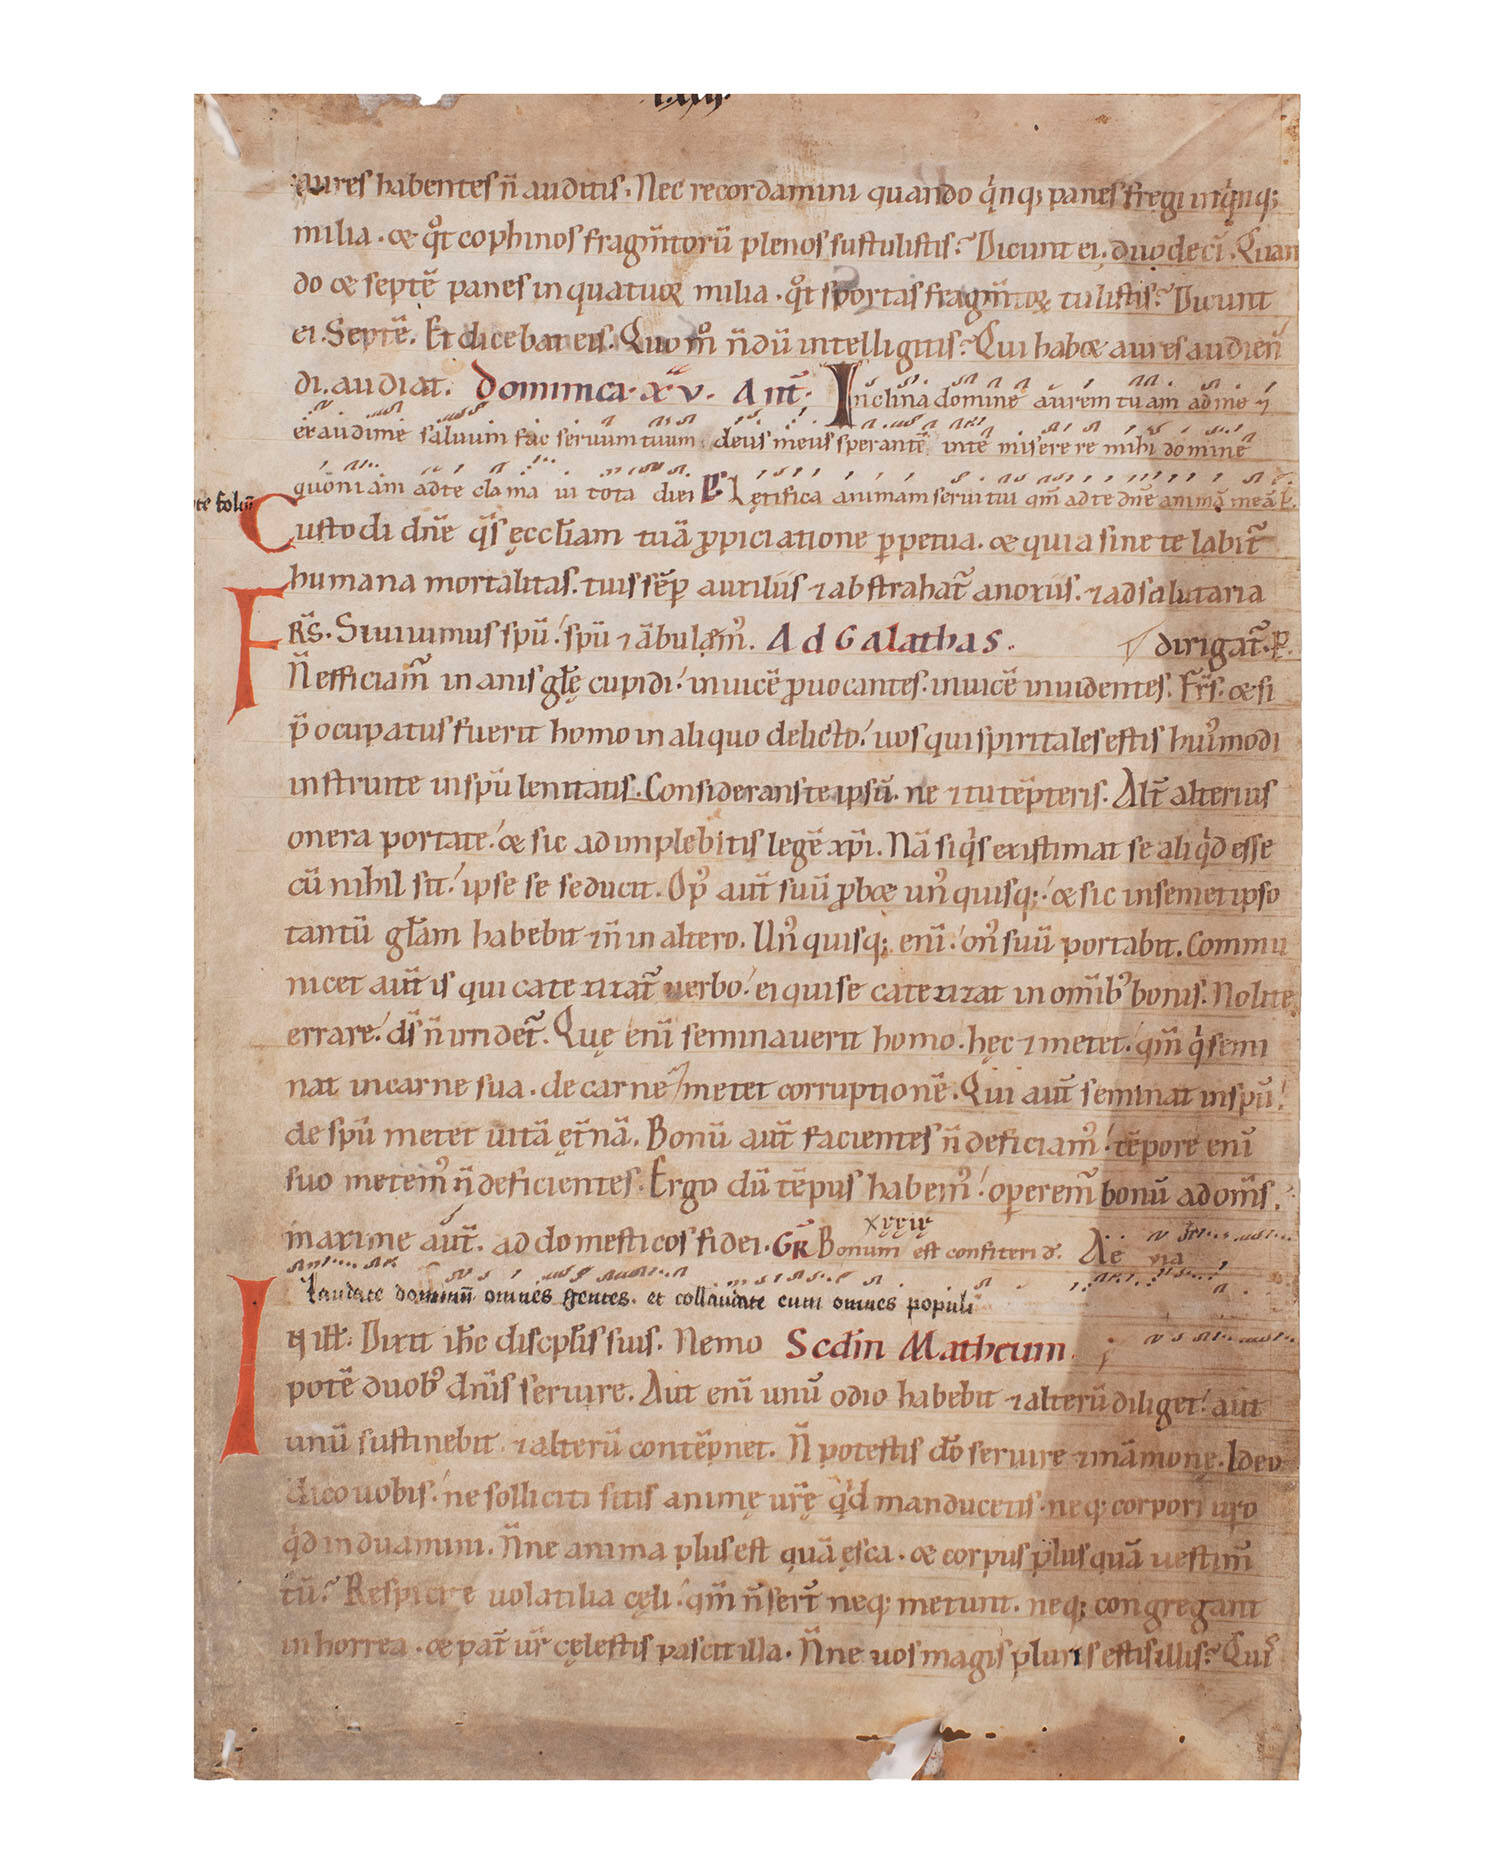 aures habentes n̄ auditis. Nec recordamini quando qͥnq; panes fregi inqͥnq;
milia. & qͦt cophinos fragm̄torū plenos sustulistis? Dicunt ei. duodeci̅. Quan
do & septē panes in quatuor milia. qͦt sportas fragm̄toꝝ tulistis? Dicunt
ei. Septē. Et dicebat eis. Quom̊ n̄dū intelligitis? Qui hab& aures audien
di. audiat. Dominica. xv. Ant̄. Inclina domine aurem tuam ad me ⁊
exaudi me saluum fac seruum tuum deus meus sperantē in te miserere mihi domine
quoniam ad te clamaui tota die Ps Lętifica animam serui tui qm̄ ad te dn̄e animā meā
te foliū
Custodi dn̄e qs̄ ęccl̄iam tuā ꝓpiciatione ꝑpetua. & quia sine te labit̄
humana mortalitas. tuis sēp auxiliis ⁊ abstrahat̄ anoxiis. ⁊ ad salutaria
FR̄S. Siuiuimus spū. spū ⁊ ābulem᾽. Ad Galathas. dirigat̄. ꝑ.
N̄ efficiam̄ inanis gl̄ę cupidi. inuicē ꝓuocantes. inuicē inuidentes. Fr̄s. & si
p̄ occupatus fuerit homo in aliquo delicto. uos qui spiritales estis hui᾽modi
instruite in spū lenitatis. Considerans te ipsū. ne ⁊ tu tēpteris. Alt̄ alterius
onera portate. & sic adimplebitis legē xp̄i. Nā siqͥs existimat se aliqͥd esse
cū nihil sit. ipse se seducit. Op᾽ aut̄ suū ꝓb& un᾽quisq;. & sic in semet ipso
tantū gl̄am habebit ⁊ n̄ in altero. Un᾽quisq; eni̅. on᾽ suū portabit. Commu
nicet aut̄ is qui catezizat̄ uerbo. ei qui se catezizat in om̄ib᾽ bonis. Nolite
errare. ds̄ n̄ irridet̄. Quę eni̅ seminauerit homo. hęc ⁊ metet. qm̄ qͥ semi
nat in carne sua. de carne metet corruptionē. Qui aut̄ seminat in spū.
de spū metet uitā ęt̄nā. Bonū aut̄ facientes n̄ deficiam᾽. tēpore eni̅
suo metem᾽ n̄ deficientes. Ergo dū tēpus habem᾽. operem̄ bonū ad om̄s.
maxime aut̄. ad domesticos fidei. GR Bonum est confiteri d. Ae uia
Laudate dominū omnes gentes. et collaudate eum omnes populi
IN ill̄. Dixit ih̄c discipl̄is suis. Nemo Scd̄m Matheum.
potē duob᾽ dn̄is seruire. Aut eni̅ unū odio habebit ⁊ alterū diliget. aut
unū sustinebit ⁊ alterū contēpnet. N̄ potestis dō seruire ⁊ māmonę. Ideo
dico uobis. ne solliciti sitis animę ur̄ę qͥd manducetis. neq; corpori ur̄o
qͥd induamini. N̄ne anima plus est quā ęsca. & corpus plus quā uestim̄
tū? Respicite uolatilia cęli. qm̄ n̄ sert̄ neq; metunt. neq; congregant
in horrea. & pat̄ ur̄ cęlestis pascit illa. N̄ne uos magis pluris estis illis? Quis